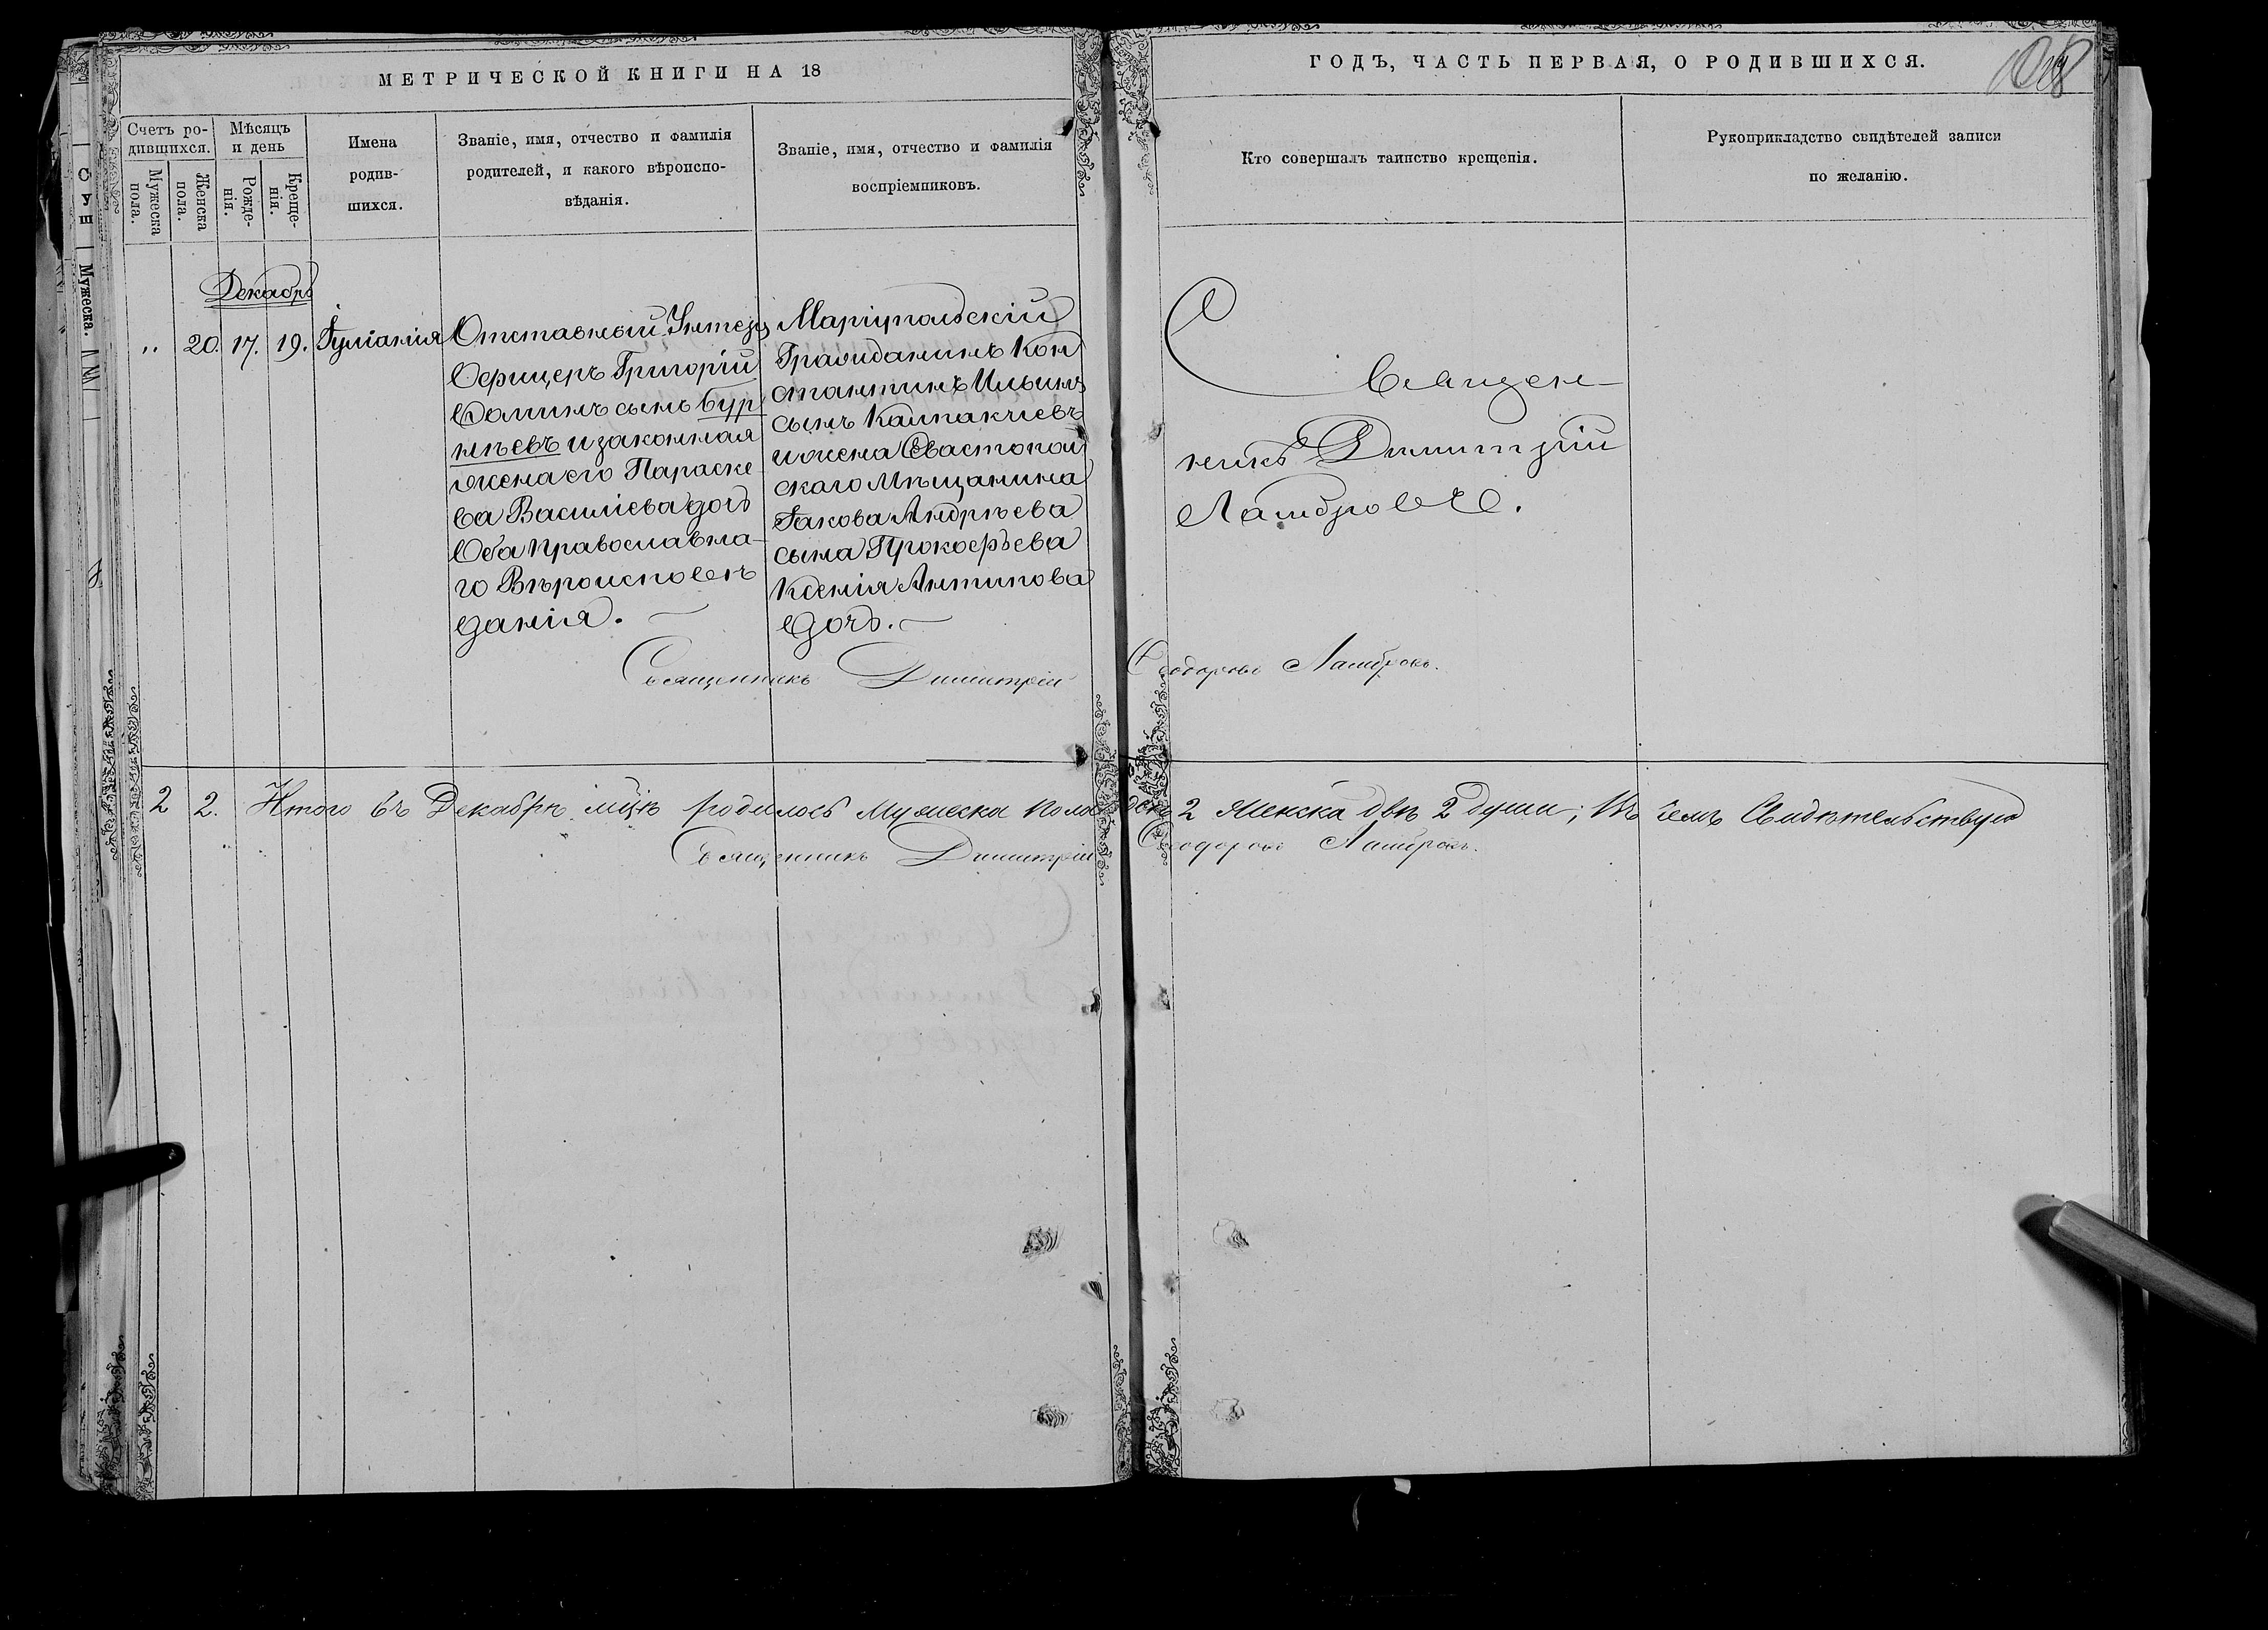 МЕТРИЧЕСКОЙ КНИГИ НА 18
ГОДЪ, ЧАСТЬ ПЕРВАЯ, О РОДИВШИХСЯ.
Счетъ ро-
дившихся.
Мужеска
пола.
Женска
пола.
Мѣсяцъ
и день
Рожде-
нія.
Креще-
нія.
Имена
родив-
шихся.
Званіе, имя, отчество и фамилія
родителей, и какого вѣроиспо-
вѣданія.
Званіе, имя, отчество и фамилія
воспріемниковъ.
Кто совершалъ таинство крещенія.
Рукоприкладство свидѣтелей записи
по желанію.
Суш
Мужеска.
Декабрь
„ 20. 17. 19. Іуліанія
Отставный Унтеръ
Офицеръ Григорій
сынъ Бур
нѣевъ и законная
жена его Параске
ва Василіева дочь
Оба Православна-
го Вѣроисповѣ
данія.
Маріупольскій
Гражданинъ Кон
стантинъ Ильинъ
сынъ Калпакчіевъ
и жена Севастополь
скаго Мѣщанина
Іакова Андрѣева
сына Прокофьева
Ксенія Антипова
дочь.
Священ-
никъ Димитрій
Священникъ Димитрій Ѳеодоровъ
2 2. Итого въ Декабрѣ мцѣ родилось Мужеска пола два 2 Женска двѣ 2 души; Въ чемъ Свидѣтельствую
Священникъ Димитрій Ѳеодоровъ